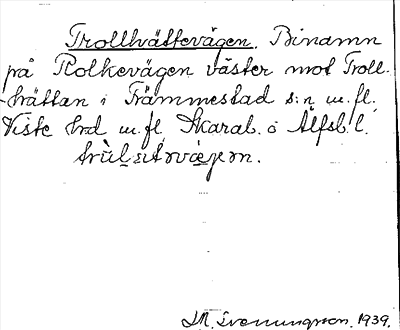 Trollhättevägen. Binamn
på Rolkevägen väster mot Troll-
hättan i Främmestad s:n m.fl.
Viste hd m.fl. Skarab. o Älfsb. l.
M. Evenungsson. 1939.